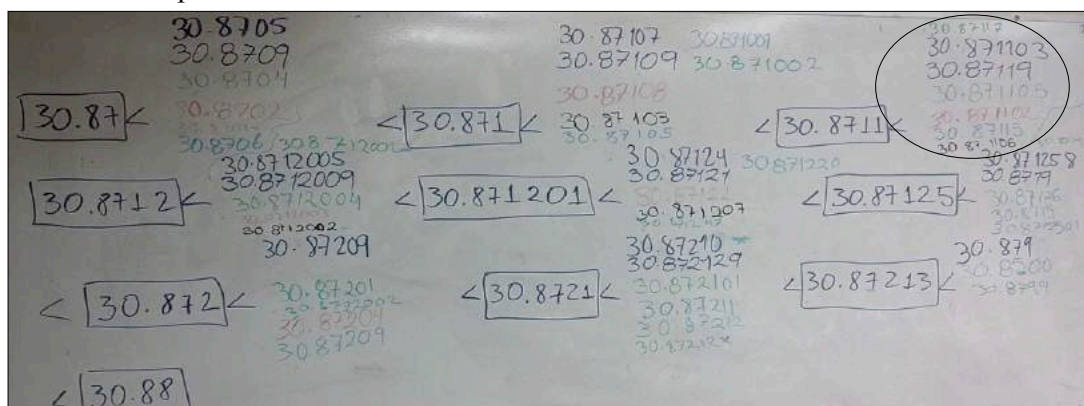 30.8705
30.8709
30.8704
30.8702
30.8706
30.87 <
30.87107 30.871001
30.87109 30.871002
30.87108
30.87103
30.87105
< 30.871 <
30.87117
30.871103
30.87119
30.871105
30.871102
30.87113
30.871106
< 30.8711 <
30.8712005
30.8712009
30.8712004
30.8712002
30.8712 <
30.87124 30.871220
30.87121
30.871207
< 30.871201 <
30.871258
30.8719
30.87126
< 30.87125 <
30.87209
30.87201
30.87204
30.87209
< 30.872 <
30.87210
30.872129
30.872101
30.87211
30.87212
< 30.8721 <
30.879
30.8200
30.8799
< 30.87213 <
< 30.88